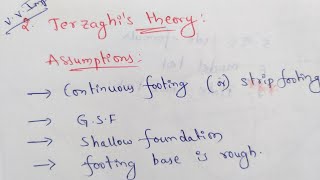 V.V.Imp
2. Terzaghi's theory:
Assumptions:
→ Continuous footing (or) strip footing
→ G.S.F
→ Shallow foundation
→ footing base is rough.